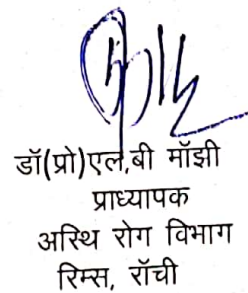 डॉ(प्रो)एल,बी मॉझी
प्राध्यापक
अस्थि रोग विभाग
रिम्स, रॉची